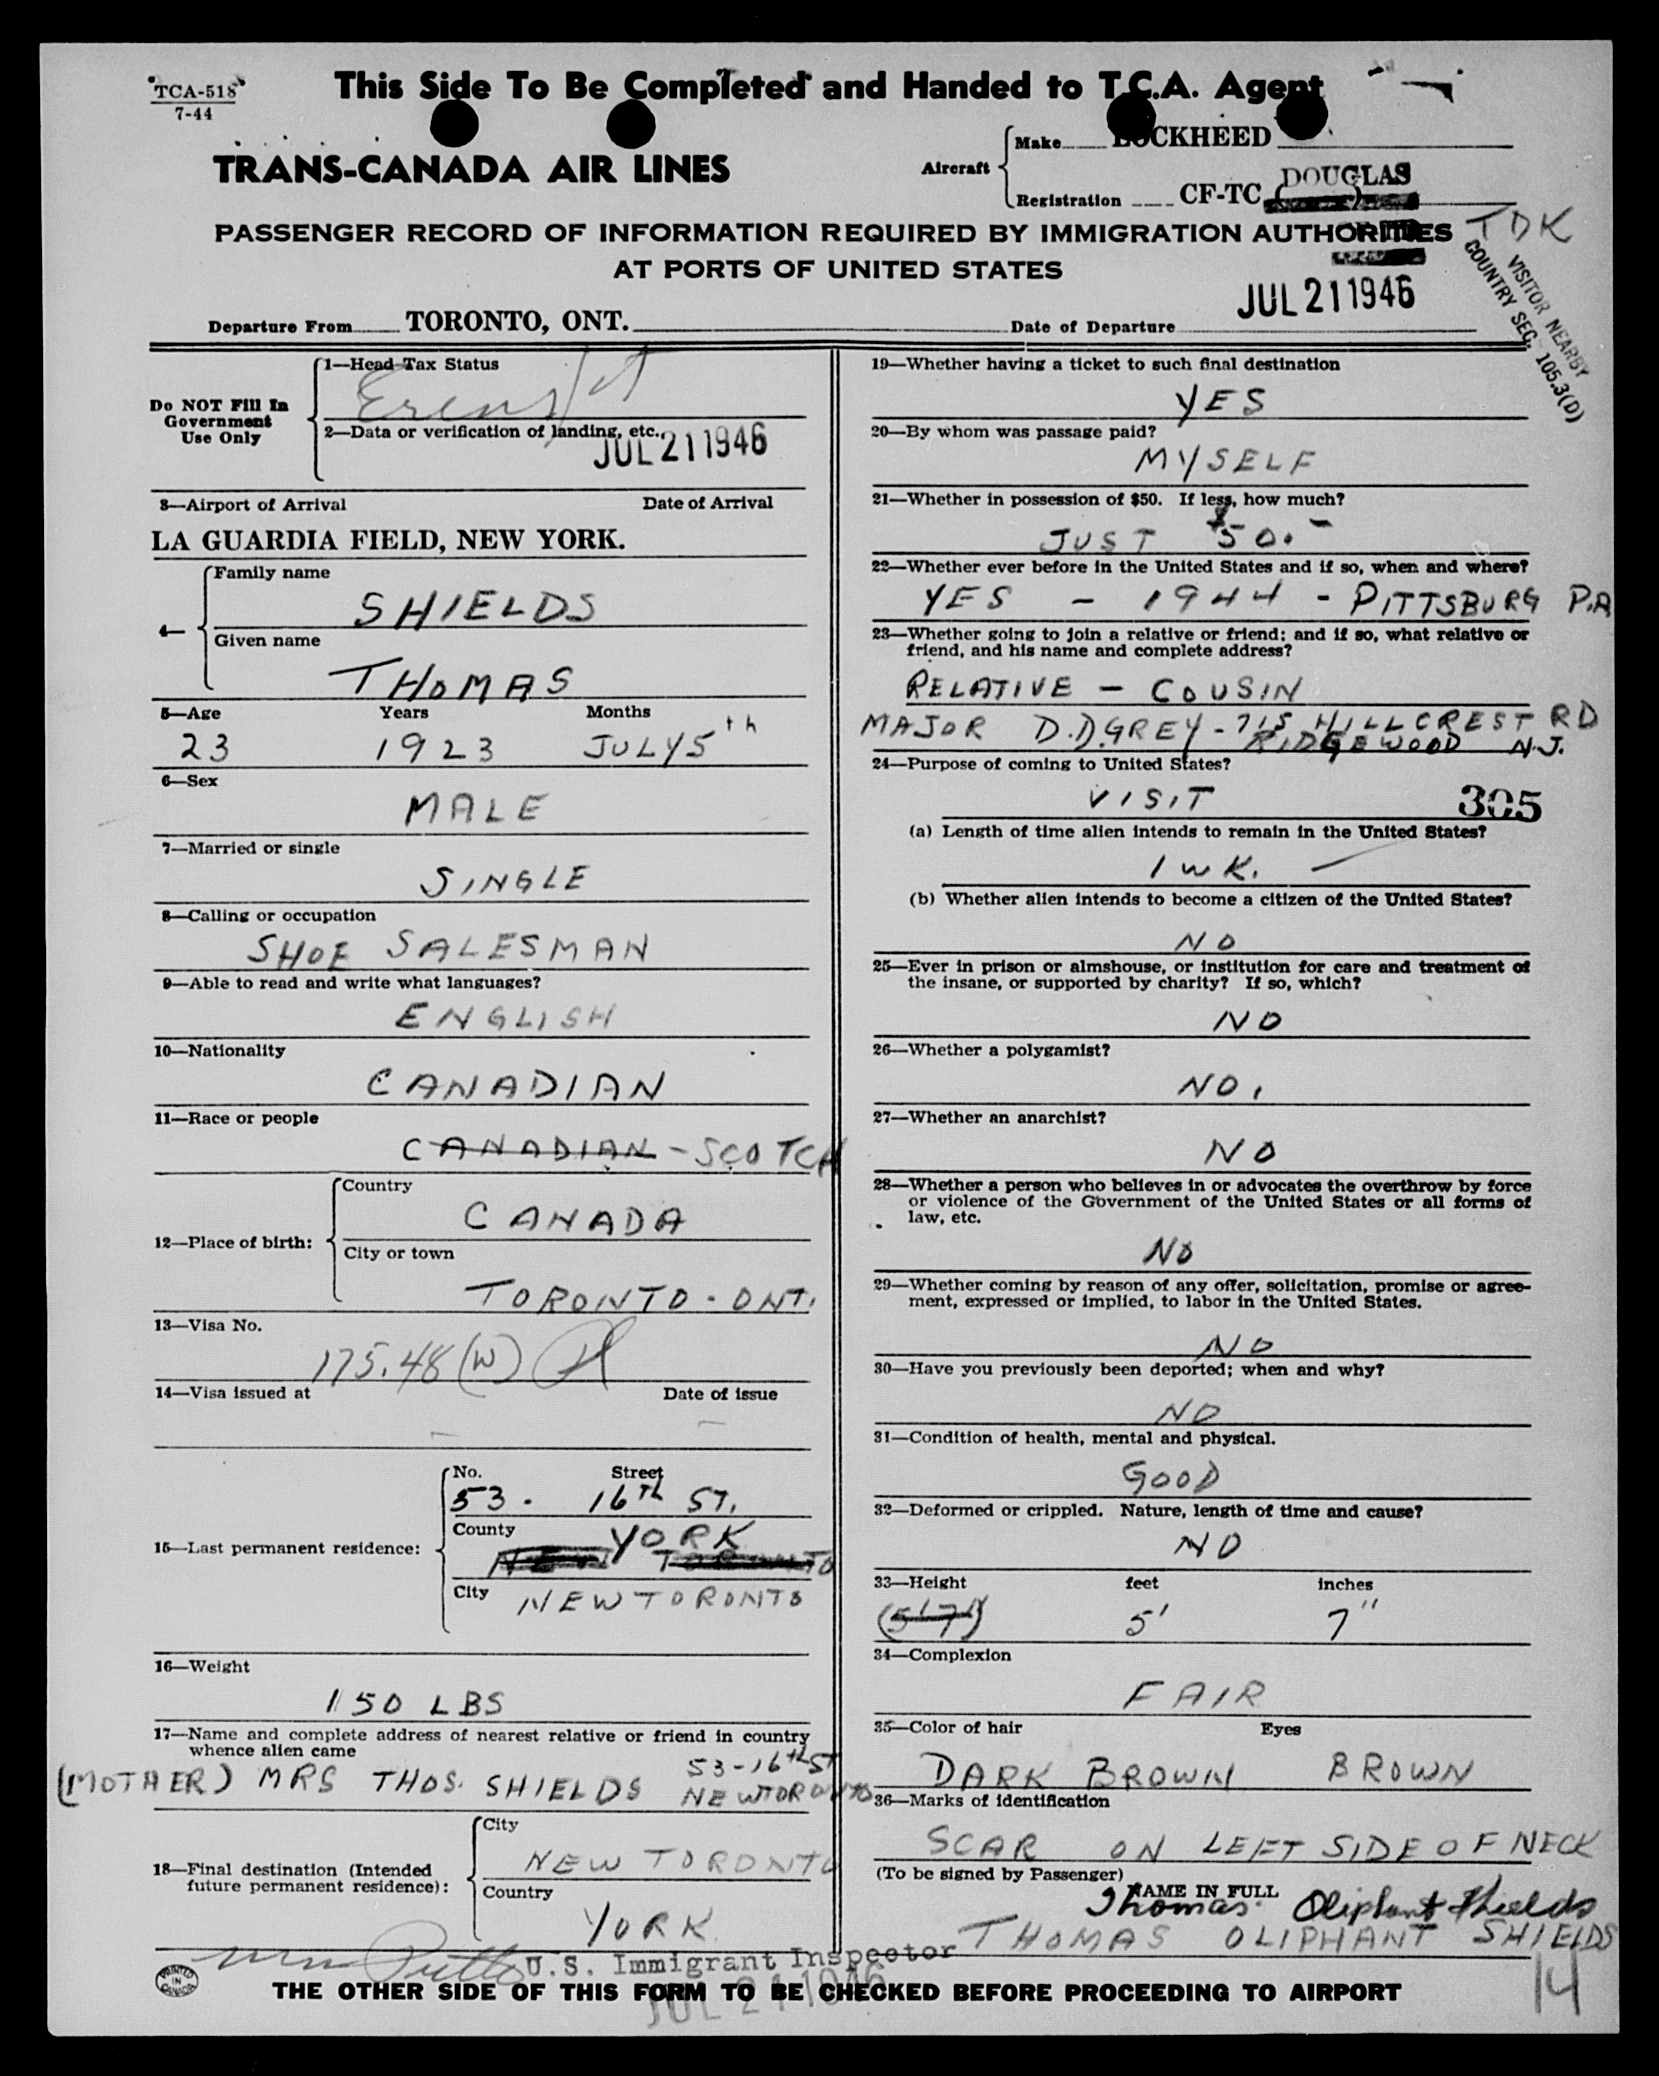 TCA-518
7-44
This Side To Be Completed and Handed to T.C.A. Agent
TRANS-CANADA AIR LINES
Aircraft
Make LOCKHEED
DOUGLAS
Registration CF-TC
TDK
PASSENGER RECORD OF INFORMATION REQUIRED BY IMMIGRATION AUTHORITIES
AT PORTS OF UNITED STATES
VISITOR NEARBY
COUNTRY SEC. 105.3(D)
JUL 21 1946
Departure From TORONTO, ONT. Date of Departure
Do NOT Fill In
Government
Use Only
1—Head Tax Status
2—Data or verification of landing, etc.
JUL 21 1946
3—Airport of Arrival Date of Arrival
LA GUARDIA FIELD, NEW YORK.
4—
Family name
SHIELDS
Given name
THOMAS
5—Age Years Months
23 1923 JULY 5th
6—Sex
MALE
7—Married or single
SINGLE
8—Calling or occupation
SHOE SALESMAN
9—Able to read and write what languages?
ENGLISH
10—Nationality
CANADIAN
11—Race or people
CANADIAN - SCOTCH
12—Place of birth:
Country
CANADA
City or town
TORONTO - ONT.
13—Visa No.
175.48 (W)
14—Visa issued at Date of issue
15—Last permanent residence:
No. Street
53 - 16TH ST.
County
YORK
City NEW TORONTO
16—Weight
150 LBS
17—Name and complete address of nearest relative or friend in country
whence alien came
53-16th ST
(MOTHER) MRS THOS. SHIELDS NEW TORONTO
18—Final destination (Intended
future permanent residence):
City
NEW TORONTO
Country
YORK
19—Whether having a ticket to such final destination
YES
20—By whom was passage paid?
MYSELF
21—Whether in possession of $50. If less, how much?
JUST $50.-
22—Whether ever before in the United States and if so, when and where?
YES - 1944 - PITTSBURG P.A
23—Whether going to join a relative or friend; and if so, what relative or
friend, and his name and complete address?
RELATIVE - COUSIN
MAJOR D.D.GREY - 715 HILLCREST RD
RIDGEWOOD N.J.
24—Purpose of coming to United States?
VISIT
305
(a) Length of time alien intends to remain in the United States?
1 WK.
(b) Whether alien intends to become a citizen of the United States?
NO
25—Ever in prison or almshouse, or institution for care and treatment of
the insane, or supported by charity? If so, which?
NO
26—Whether a polygamist?
NO.
27—Whether an anarchist?
NO
28—Whether a person who believes in or advocates the overthrow by force
or violence of the Government of the United States or all forms of
law, etc.
NO
29—Whether coming by reason of any offer, solicitation, promise or agree-
ment, expressed or implied, to labor in the United States.
NO
30—Have you previously been deported; when and why?
NO
31—Condition of health, mental and physical.
GOOD
32—Deformed or crippled. Nature, length of time and cause?
NO
33—Height feet inches
(5'7") 5' 7"
34—Complexion
FAIR
35—Color of hair Eyes
DARK BROWN BROWN
36—Marks of identification
SCAR ON LEFT SIDE OF NECK
(To be signed by Passenger)
NAME IN FULL
Thomas Oliphant Shields
THOMAS OLIPHANT SHIELDS
U.S. Immigrant Inspector
JUL 21 1946
PRINTED IN CANADA
THE OTHER SIDE OF THIS FORM TO BE CHECKED BEFORE PROCEEDING TO AIRPORT
14